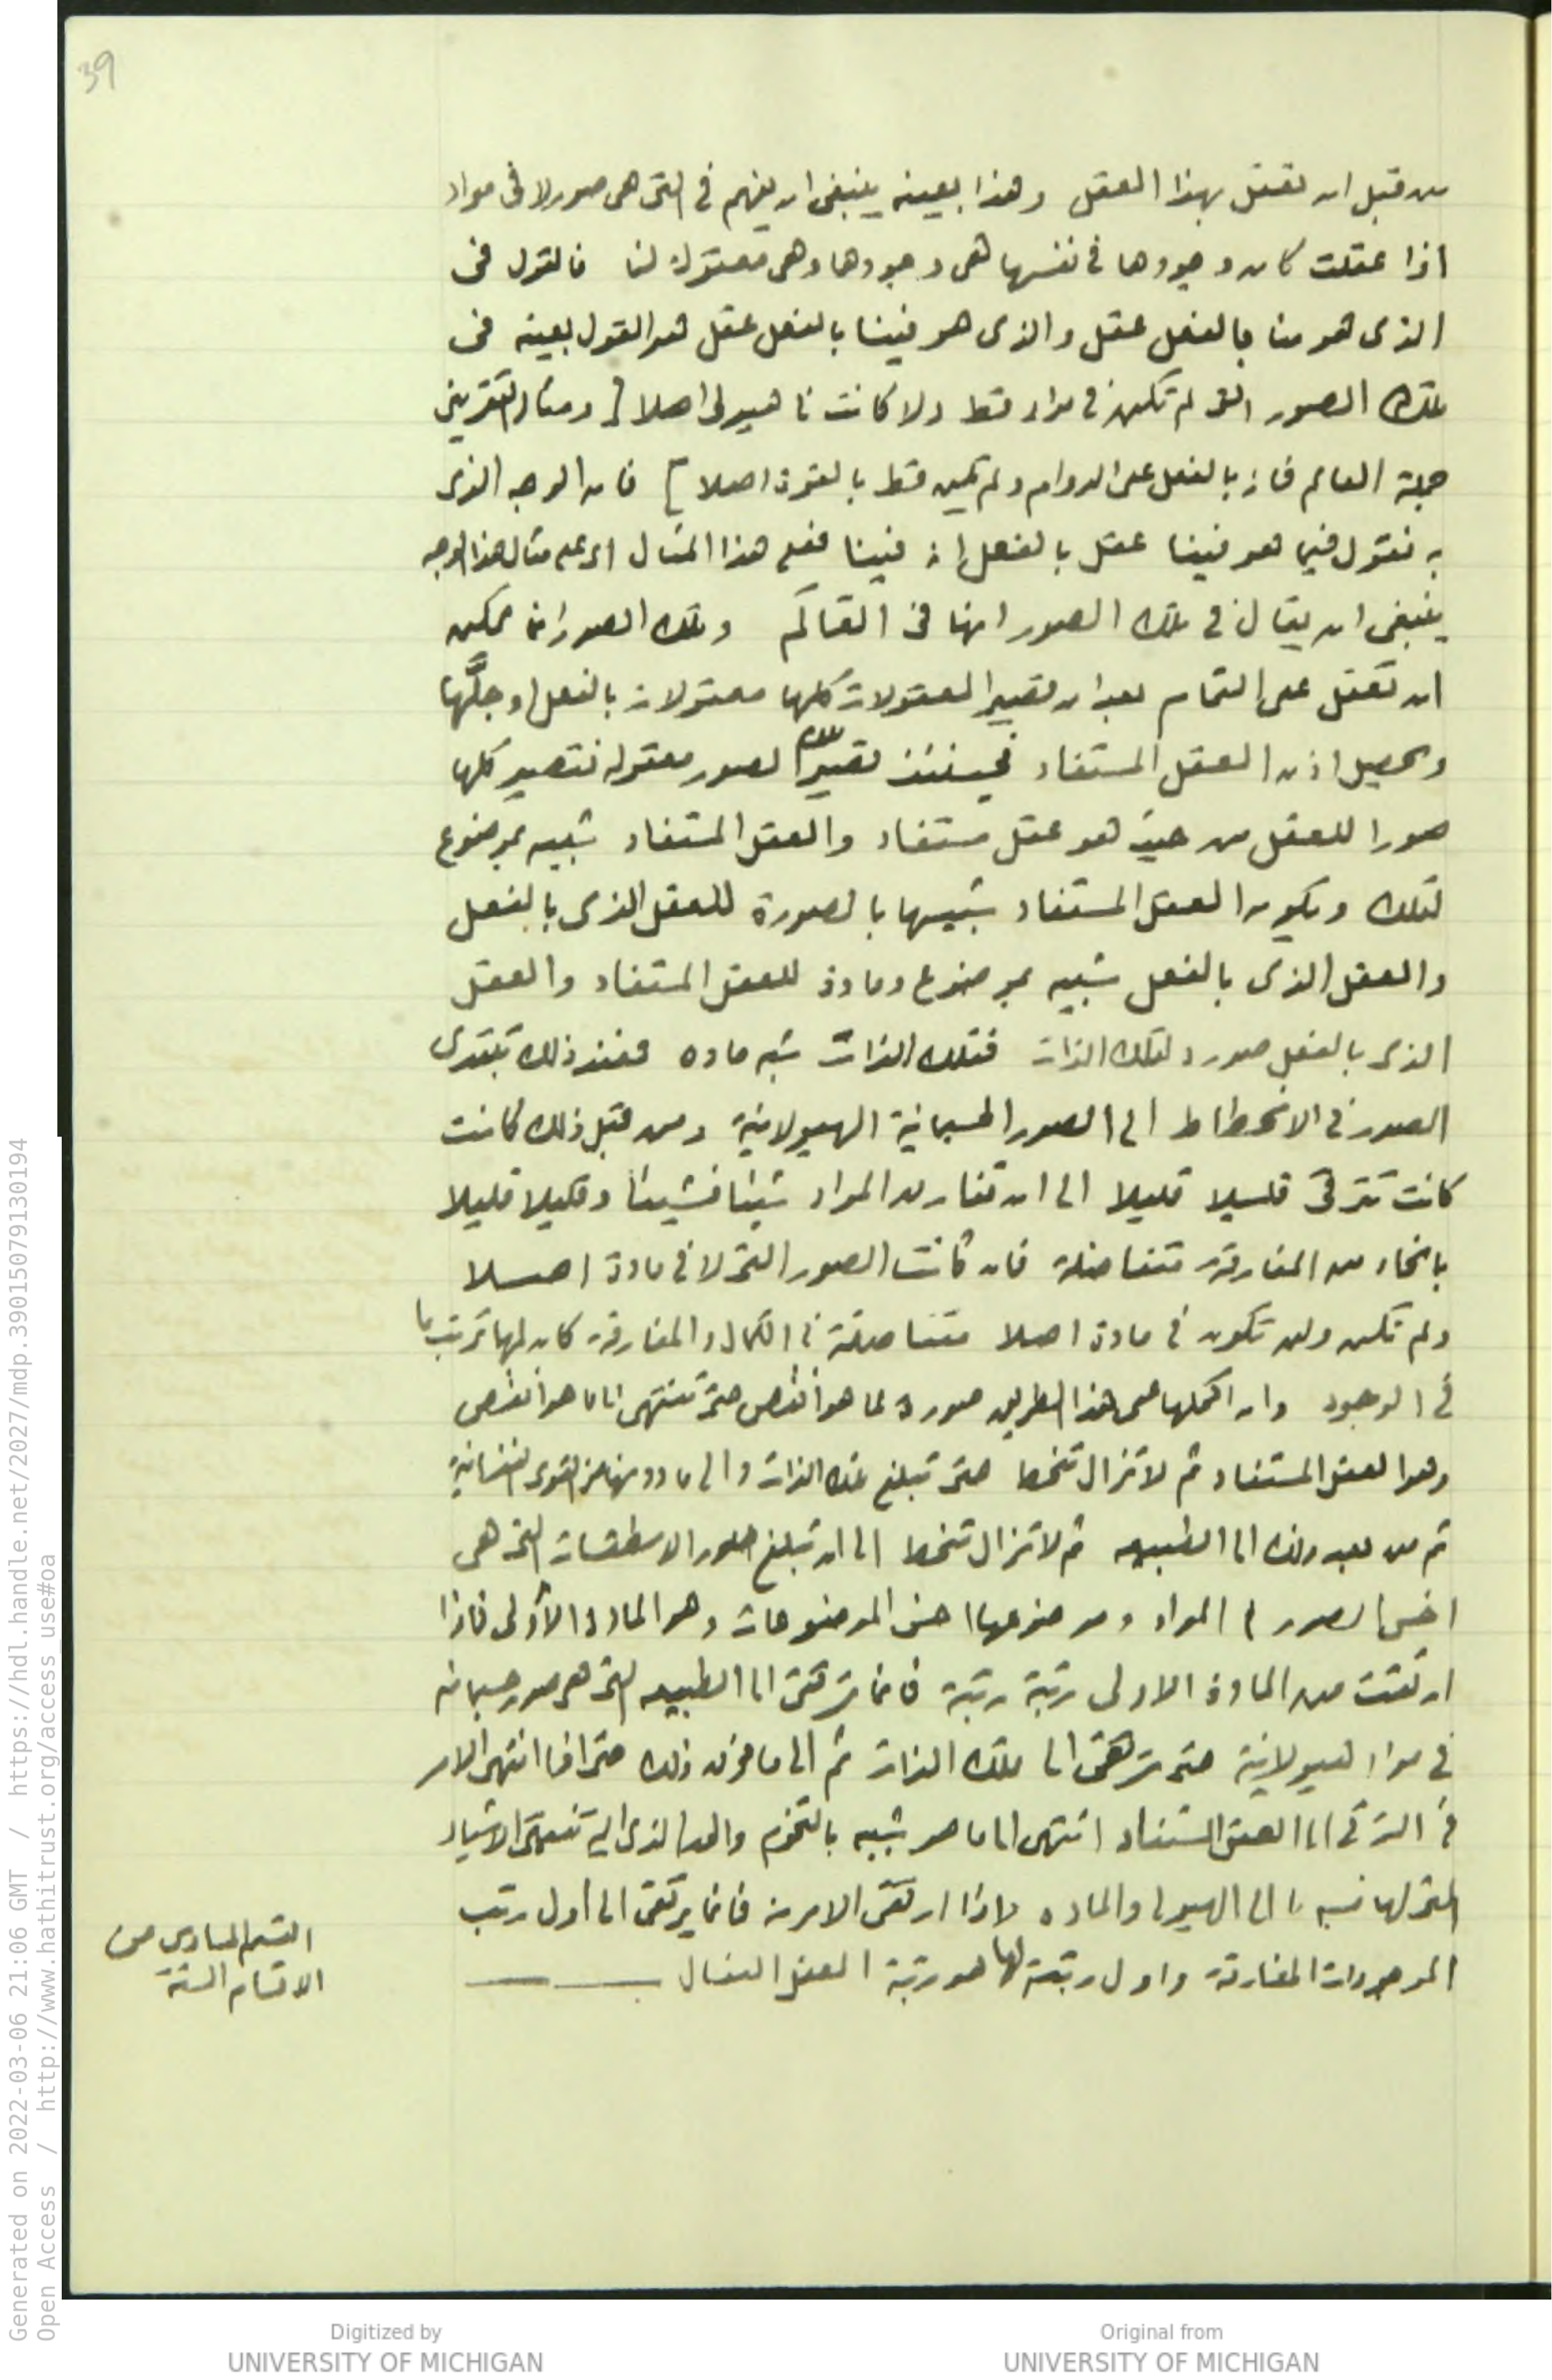 39
من قبل ان تعقل بهذا العقل وهذا بعينه ينبغى ان يفهم فى التى هى صور لا فى مواد
اذا عقلت كان وجودها فى نفسها هى وجودها وهى معقولة لنا فالقول فى
الذى هو منا بالفعل عقل والذى هو فينا بالفعل عقل هو القول بعينه فى
تلك الصور التى لم تكن فى مواد قط ولا كانت لها هيولى اصلا [ ومثال التقريبى
جملة العالم فانه بالفعل على الدوام ولم تكن قط بالقوة اصلا ] فان الوجه الذى
به نقول فيما هو فينا عقل بالفعل انه فينا فعلى هذا المثال اى على مثال هذا الوجه
ينبغى ان يقال فى تلك الصور انها فى العالم وتلك الصور انما يمكن
ان تعقل على التمام بعد ان تصير المعقولات كلها معقولات بالفعل او جلّها
ويحصل اذن العقل المستفاد فحينئذ تصير تلك الصور معقوله فتصير كلها
صورا للعقل من حيث هو عقل مستفاد والعقل المستفاد شبيه بموضوع
لتلك ويكون العقل المستفاد شبيها بالصورة للعقل الذى بالفعل
والعقل الذى بالفعل شبيه بموضوع ومادة للعقل المستفاد والعقل
الذى بالفعل صورة لتلك الذات فتلك الذات شبه ماده فعند ذلك تبتدى
الصور فى الانحطاط الى الصور الجسمانية الهيولانية ومن قبل ذلك كانت
كانت تترقى قليلا قليلا الى ان تفارق المواد شيئا فشيئا وقليلا قليلا
بانحاء من المفارقة متفاضلة فان كانت الصور التى لا فى مادة اصلا
ولم تكن ولن تكون فى مادة اصلا متفاضلة فى الكمال والمفارقة كان لها ترتيب ما
فى الوجود وان اكملها على هذا الطريق صورة لما هو انقص حتى تنتهى الى ما هو انقص
وهو العقل المستفاد ثم لا تزال تنحط حتى تبلغ تلك الذات والى ما دونها من القوى النفسانية
ثم من بعد ذلك الى الطبيعه ثم لا تزال تنحط الى ان تبلغ صور الاسطقسات التى هى
اخس الصور فى المواد وموضوعها اخس الموضوعات وهو المادة الأولى فاذا
ارتقت من المادة الاولى رتبة رتبة فانما ترتقى الى الطبيعه التى هى صور جسمانيه
فى مواد هيولانية حتى ترتقى الى تلك الذات ثم الى ما فوق ذلك حتى اذا انتهى الامر
فى الترقى الى العقل المستفاد انتهى الى ما هو شبيه بالتخوم والحد الذى اليه تنتهى الاشياء
التى لها نسبه ما الى الهيولى والماده واذا ارتقى الامر منه فانما يرتقى الى أول رتب
الموجودات المفارقة واول رتبة لها هو رتبة العقل الفعال
القسم السادس من
الاقسام الستة
Generated on 2022-03-06 21:06 GMT / https://hdl.handle.net/2027/mdp.39015079130194
Open Access / http://www.hathitrust.org/access_use#oa
Digitized by
UNIVERSITY OF MICHIGAN
Original from
UNIVERSITY OF MICHIGAN